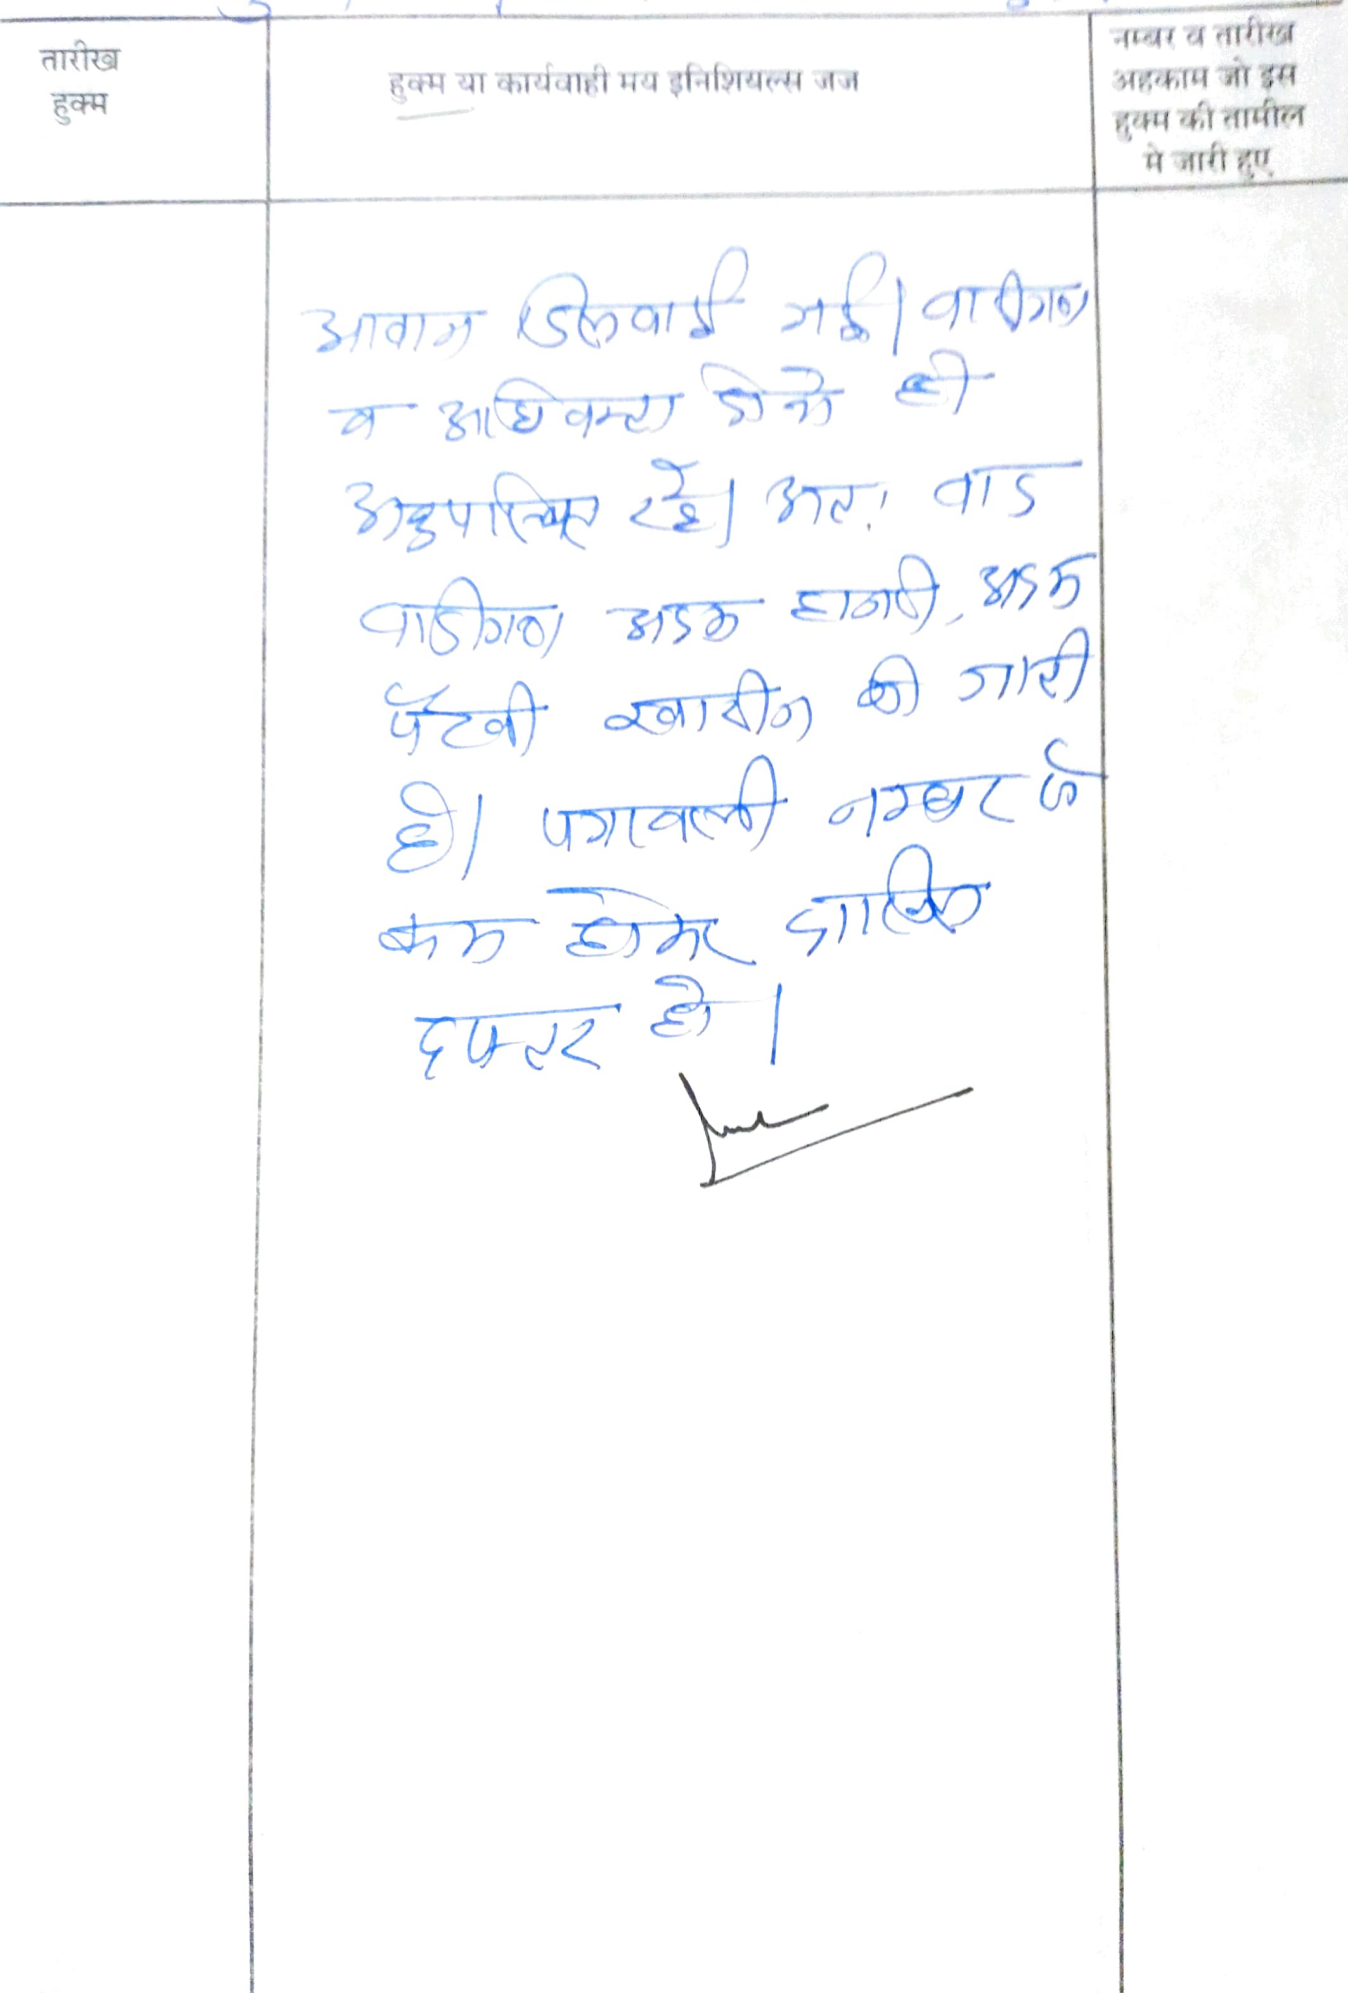 तारीख
हुक्म
हुक्म या कार्यवाही मय इनिशियल्स जज
नम्बर व तारीख
अहकाम जो इस
हुक्म की तामील
मे जारी हुए
आवाज दिलवाई गई। वादीगण
व अधिवक्ता दोनो ही
अनुपस्थित रहे। अतः वाद
वादीगण अदम हाजरी, अदम
पैरवी खारीज की जाती
है। पत्रावली नम्बर से
कम होकर दाखिल
दफ्तर हो।